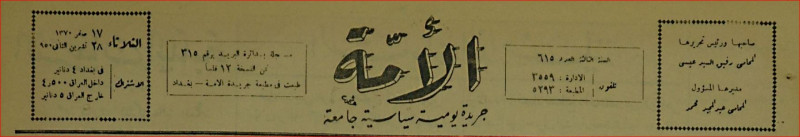 صاحبها ورئيس تحريرها
المحامي رفيق السيد عيسى
مديرها المسؤول
المحامي عبد المجيد محمد
السنة الثالثة العدد ٦١٥
تلفون
الادارة : ٣٥٥٩
المطبعة : ٥٢٩٣
الأمّة
جريدة يومية سياسية جامعة
مسجلة بدائرة البريد برقم ٣١٥
ثمن النسخة ١٢ فلسا
طبعت في مطبعة جريدة الامة — بغداد
الثلاثاء
١٧ صفر ١٣٧٠
٢٨ تشرين الثاني ٩٥٠
الاشتراك
في بغداد ٤ دنانير
داخل العراق ٤٫٥٠٠
خارج العراق ٥ دنانير